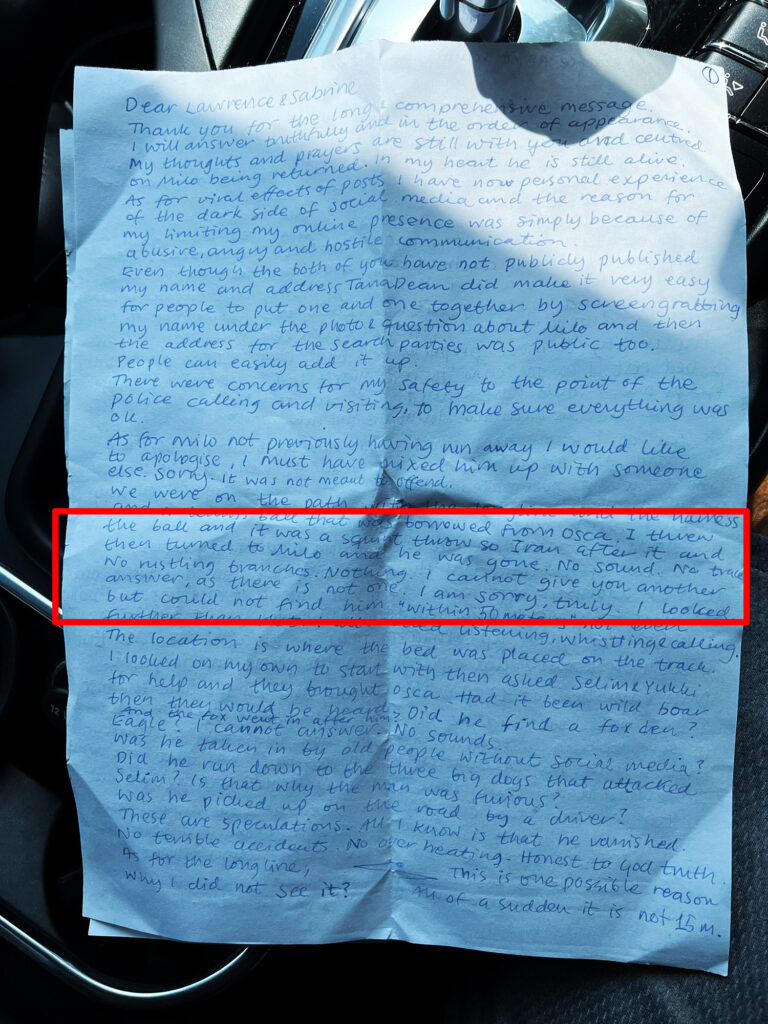 ①
Dear Lawrence & Sabrine
Thank you for the long & comprehensive message.
I will answer truthfully and in the order of appearance.
My thoughts and prayers are still with you and centred
on Milo being returned. In my heart he is still alive.
As for viral effects of posts I have now personal experience
of the dark side of social media and the reason for
my limiting my online presence was simply because of
abusive, angry and hostile communication.
Even though the both of you have not publicly published
my name and address Tana Dean did make it very easy
for people to put one and one together by screengrabbing
my name under the photo & question about Milo and then
the address for the search parties was public too.
People can easily add it up.
There were concerns for my safety to the point of the
police calling and visiting, to make sure everything was
ok.
As for Milo not previously having run away I would like
to apologise, I must have mixed him up with someone
else. Sorry. It was not meant to offend.
We were on the path with the long line and the harness
and a tennis ball that was borrowed from Osca. I threw
the ball and it was a squint throw so I ran after it and
then turned to Milo and he was gone. No sound. No trace
No rustling branches. Nothing. I cannot give you another
answer, as there is not one. I am sorry, truly. I looked
but could not find him "within 50 meters" nor even
further than that. I listening, whistling & calling.
The location is where the bed was placed on the track.
I looked on my own to start with then asked Selim & Yukki
for help and they brought Osca. Had it been wild boar
then they would be heard. Did he find a fox den?
And the fox went in after him?
Eagle? I cannot answer. No sounds.
Was he taken in by old people without social media?
Did he run down to the three big dogs that attacked
Selim? Is that why the man was furious?
Was he picked up on the road by a driver?
These are speculations. All I know is that he vanished.
No terrible accidents. No over heating. Honest to God truth.
As for the longline,
This is one possible reason
why I did not see it?
All of a sudden it is not 15 m.